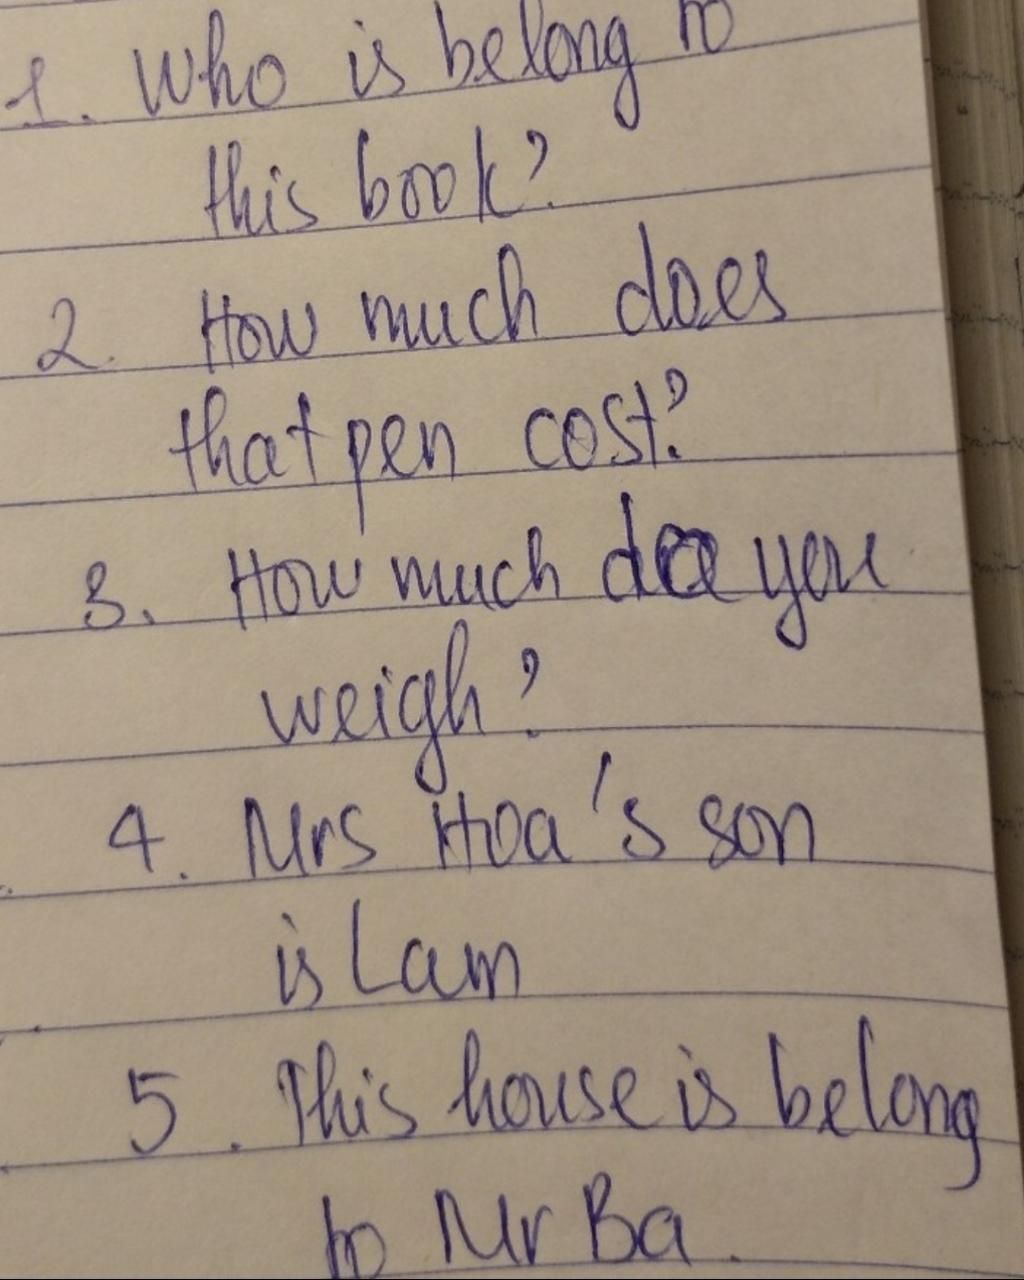 1. Who is belong to
this book?
2. How much does
that pen cost?
3. How much do you
weigh?
4. Mrs Hoa's son
is Lam
5. This house is belong
to Mr Ba.